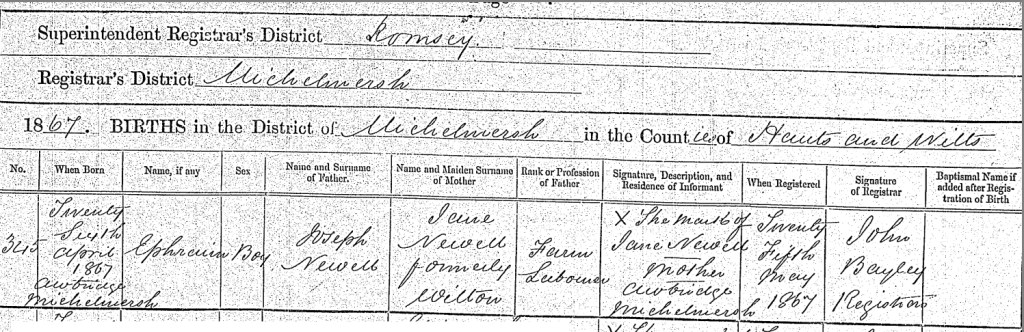 Superintendent Registrar's District Romsey.
Registrar's District Michelmersh
1867. BIRTHS in the District of Michelmersh in the Counties of Hants and Wilts
No. When Born Name, if any Sex Name and Surname of Father. Name and Maiden Surname of Mother Rank or Profession of Father Signature, Description, and Residence of Informant When Registered Signature of Registrar Baptismal Name if added after Registration of Birth
345
Twenty
Sixth
April
1867
Awbridge
Michelmersh
Ephraim
Boy
Joseph
Newell
Jane
Newell
formerly
Wilton
Farm
Labourer
X The mark of
Jane Newell
Mother
Awbridge
Michelmersh
Twenty
Fifth
May
1867
John
Bayley
Registrar